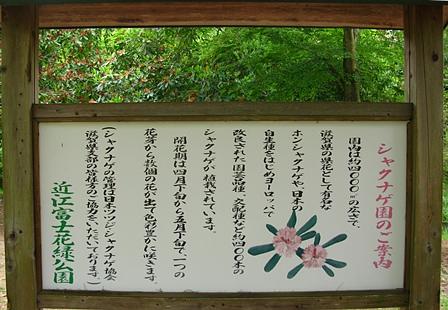 シャクナゲ園のご案内
園内は約四〇〇〇㎡の広さで、
滋賀県の県花として有名な
ホンシャクナゲや、日本の
自生種をはじめヨーロッパで
改良された園芸品種、交配種など約四〇〇本の
シャクナゲが植栽されています。
開花期は四月下旬から五月下旬で、一つの
花芽から数個の花が出て色彩豊かに咲きます。
(シャクナゲの管理は日本ツツジ・シャクナゲ協会
滋賀県支部の皆様方のご協力をいただいております。)
近江富士花緑公園